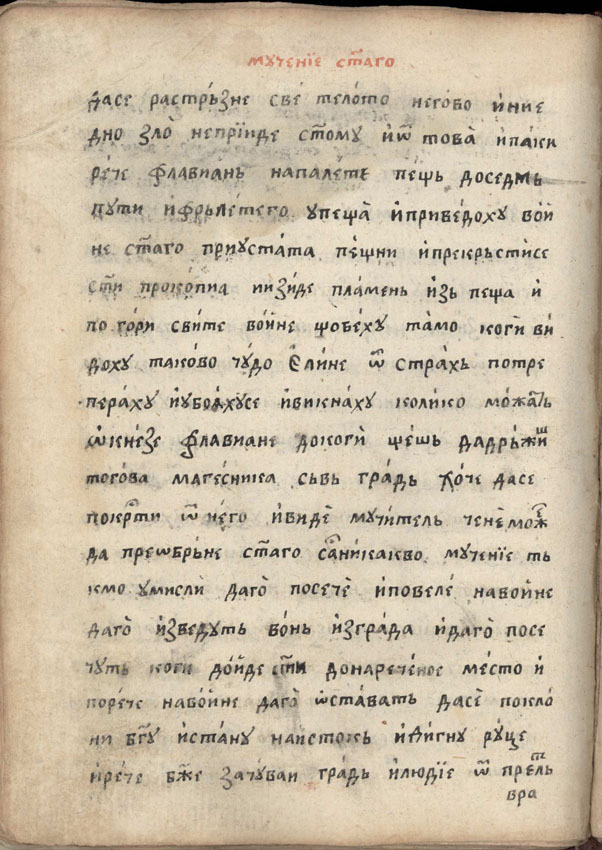 мꙋченїе ст҃аго
дасе растрьзне све́ телото негово и́ние
дно зло̀ непрїиде ст҃омꙋ и҆ѿ това̀ и҆паки
ре́че флавиань напале́те пе́щь доседмь
пꙋти и҆фрьле́тего ꙋпеща̀ и҆приве́дохꙋ вои
не ст҃аго приꙋста́та пе́щни и҆прекрьсти́се
ст҃и проко́пиа иизи́де пла́мень и҆зь пеща и҆
погори сви́те во́ине що бе́хꙋ та́мо коги ви
дохꙋ тако́во чꙋ́до є҆ли́не ѿ стра́хь потре
пера́хꙋ и҆ꙋбоа́хꙋсе и҆викна́хꙋ коли́ко мо́жать
ѡ҆ кне́зе флавиане докогѝ ще́шь дадрьжи́ш
тогова магесника сьвь гра́дь хо́че дасе
покр҃ти ѿ не́го и҆виде мꙋчи́тель чене може
да преѡбрьне ст҃аго саникакво мꙋчение ть
кмо ꙋмисли даго̀ посечѐ и҆повеле́ навои́не
даго̀ и҆зведꙋть во́нь и҆згра́да и҆даго̀ посе
чꙋть когѝ до́иде ст҃и донаречено́е место и҆
порече навои́не даго̀ ѡ҆ста́вать дасѐ покло
ни бг҃ꙋ и҆ста́нꙋ наисто́кь и҆дигнꙋ рꙋ́це
и҆ре́че бж҃е зачꙋваи гра́дь и҆лю́дїе ѿ прель
вра